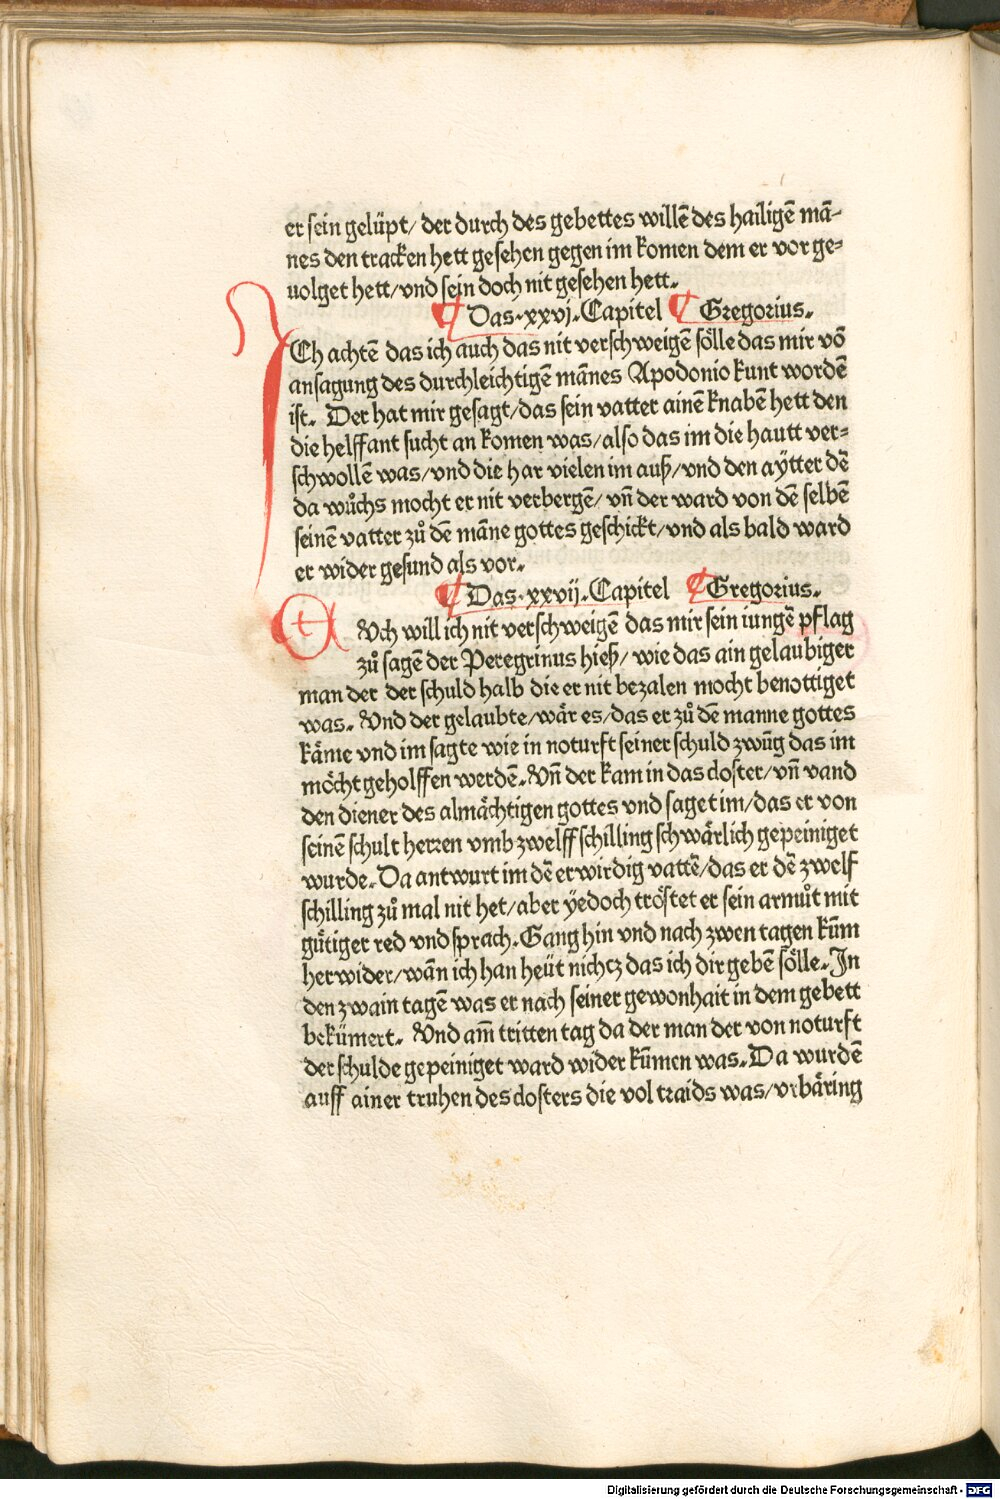 er sein gelüpt/ der durch des gebettes willē des hailigē mā-
nes den tracken hett gesehen gegen im komen dem er vor ge=
volget hett/vnd sein doch nit gesehen hett.
Das.xxvj.Capitel Gregorius.
ICh achtē das ich auch das nit verschweigē sölle das mir vō
ansagung des durchleichtigē mānes Apodonio kunt wordē
ist. Der hat mir gesagt/das sein vatter ainē knabē hett den
die helffant sucht an komen was/also das im die hautt ver=
schwollē was/vnd die har vielen im auß/vnd den aÿtter dē
da wůchs mocht er nit verbergē/ vn̄ der ward von dē selbē
seinē vatter zů dē māne gottes geschickt/vnd als bald ward
er wider gesund als vor.
Das.xxvij.Capitel Gregorius.
AVch will ich nit verschweigē das mir sein iungē pflag
zů sagen der Peregrinus hieß/ wie das ain gelaubiger
man der der schuld halb die er nit bezalen mocht benottiget
was. Vnd der gelaubte/wär es/das er zů dē manne gottes
käme vnd im sagte wie in noturft seiner schuld zwūg das im
möcht geholffen werdē.Vn̄ der kam in das closter/vn̄ vand
den diener des almächtigen gottes vnd saget im/das er von
seinē schult herren vmb zwelff schilling schwärlich gepeiniget
wurde.Da antwurt im dē erwirdig vattē/das er dē zwelf
schilling zů mal nit het/aber ÿedoch tröstet er sein armůt mit
gütiger red vnd sprach.Gang hin vnd nach zwen tagen kūm
herwider/wān ich han heüt nichcz das ich dir gebē sölle.In
den zwain tagē was er nach seiner gewonhait in dem gebett
bekümert. Vnd am̄ tritten tag da der man der von noturft
der schulde gepeiniget ward wider kūmen was.Da wurdē
auff ainer truhen des closters die vol traids was/vrbäring
Digitalisierung gefördert durch die Deutsche Forschungsgemeinschaft - DFG